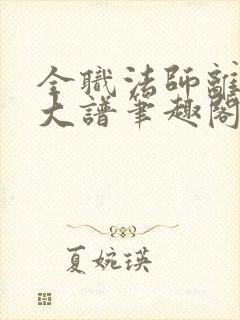 全職法師離
大譜筆趣閣
夏婉瑛